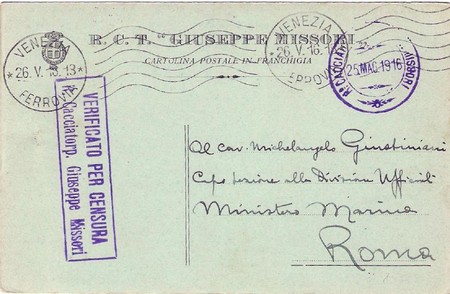 R. C. T. "GIUSEPPE MISSORI"
CARTOLINA POSTALE IN FRANCHIGIA
VENEZIA
* 26.V.16.13 *
FERROVIA
VENEZIA
26.V.16.13
FERROVIA
25 MAG. 1916
MISSORI
VERIFICATO PER CENSURA
R. Cacciatorp. Giuseppe Missori
Al Cav. Michelangelo Giustiniani
Capo sezione alla Divisione Ufficiali
Ministero Marina
Roma